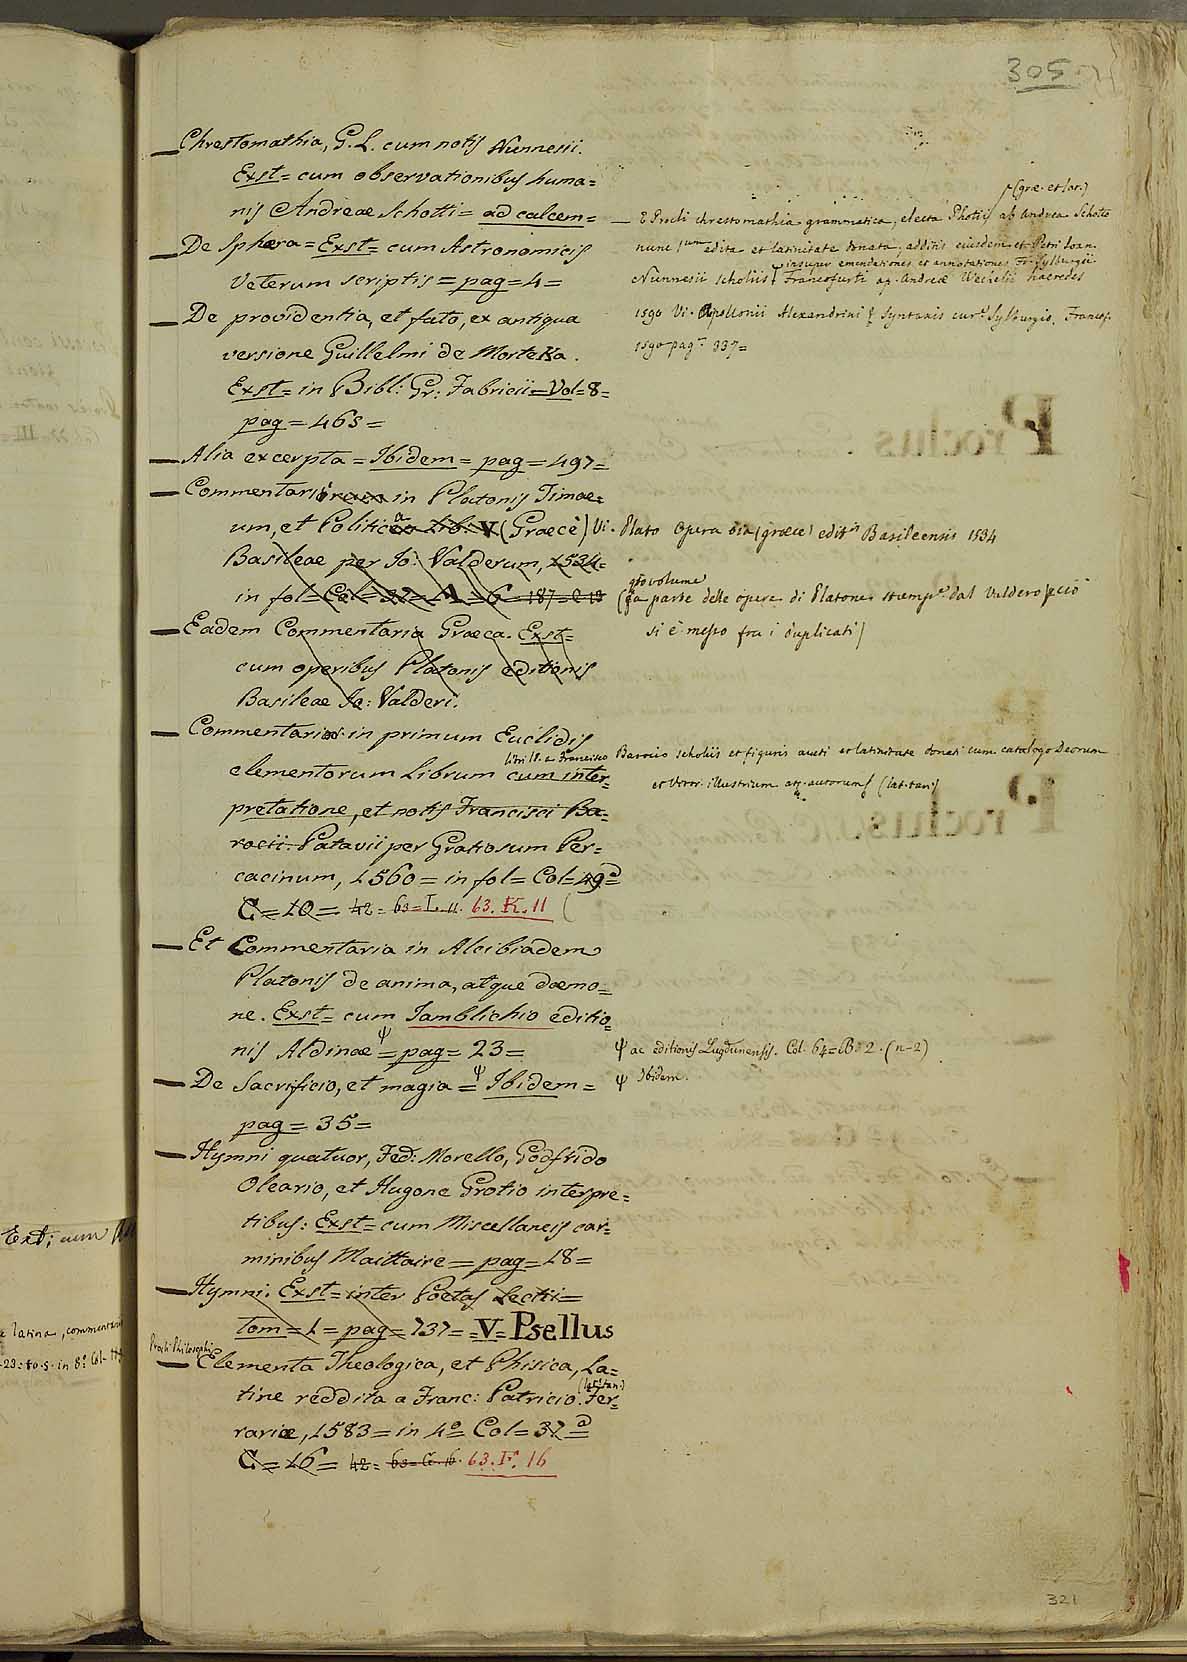 305
— Chrestomathia, G. L. cum notis Nunnesii.
Exst= cum observationibus huma=
nis Andreae Schotti= ad calcem=
— De Sphæra= Exst= cum Astronomicis
Veterum scriptis= pag=4=
— De providentia, et fato, ex antiqua
versione Guillelmi de Morteka.
Exst= in Bibl: Gr: Fabricii= Vol=8=
pag=465=
— Alia excerpta= Ibidem= pag=497=
— Commentari in Platonis Timae=
um, et Politica Lib: V (Graecè) Vi.
Basileae per Io: Valderum, 1534=
in fol= Col= 32= A= 6= 187=
— Eadem Commentaria Graeca. Exst=
cum operibus Platonis editionis
Basileae Io: Valderi.
— Commentari in primum Euclidis
libri IV. a Francisco
elementorum Librum cum inter=
pretatione, et notis Francisci Ba=
rocii. Patavii per Gratiosum Per=
cacinum, 1560= in fol= Col=49=
C=10= 42= 63=L.11. 63.K.11
— Et Commentaria in Alcibiadem
Platonis de anima, atque dæmo=
ne. Exst= cum Iamblichio editio=
nis Aldinae ψ= pag= 23=
— De Sacrificio, et magia= ψ Ibidem=
pag= 35=
— Hymni quatuor, Fed: Morello, Godfrido
Oleario, et Hugone Grotio interpre=
tibus: Exst= cum Miscellaneis car=
minibus Maittaire= pag=18=
— Hymni. Exst= inter Poetas Lectii=
tom=1= pag= 737= =V= Psellus
Procli Philosophi
— Elementa Theologica, et Phisica, La=
(lat. tan.)
tine reddita a Franc: Patricio. Fer=
rariæ, 1583= in 4º Col= 37 a=
C=16= 42= 63=G.16. 63.F.16
(græ. et lat.)
— Procli chrestomathia grammatica, electa Photii ab Andrea Schoto
nunc 1um edita et latinitate donata, additis eiusdem et Petri Ioan.
insuper emendationes et annotationes Fr. Sylburgii
Nunnesii scholiis Francofurti ap. Andreæ Wechelii haeredes
1590 Vi. Apollonii Alexandrini Syntaxis cur. Sylburgio. Francof.
1590 pag. 337=
Plato Opera oia (græce) edit. Basileensis 1534
qto volume
(fa parte delle opere di Platone stamp. dal Valdero pciò
si è messo fra i duplicati)
Barocio scholiis et figuris aucti et latinitate donati cum catalogo Deorum
et Viror. illustrium atq. autorum (lat. tan.)
ψ ac editionis Lugdunensis. Col. 64= B. 2. (n-2)
ψ Ibidem.
Ext; cum
latina, commentari
321